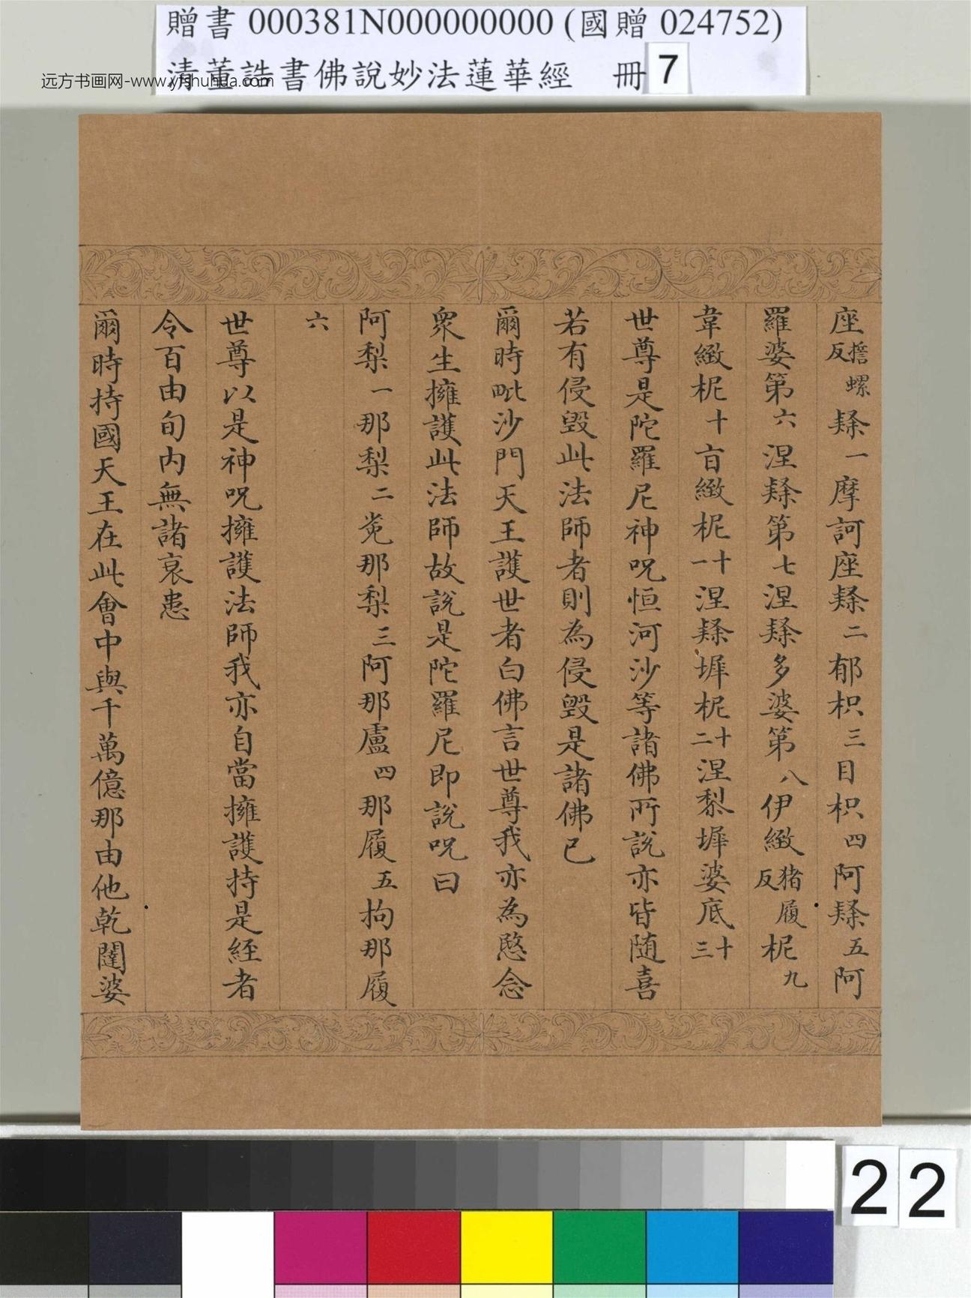 贈書 000381N000000000 (國贈 024752)
清董誥書佛說妙法蓮華經 冊 7
远方书画网-www.yfshuhua.com
座誓螺反隸一摩訶座隸二郁枳三目枳四阿隸五阿
羅婆第六涅隸第七涅隸多婆第八伊緻猪履反柅九
韋緻柅十旨緻柅十一涅隸墀柅十二涅黎墀婆底十三
世尊是陀羅尼神呪恒河沙等諸佛所說亦皆隨喜
若有侵毀此法師者則為侵毀是諸佛已
爾時毗沙門天王護世者白佛言世尊我亦為愍念
眾生擁護此法師故說是陀羅尼即說呪曰
阿梨一那梨二㝹那梨三阿那盧四那履五拘那履
六
世尊以是神呪擁護法師我亦自當擁護持是經者
令百由旬內無諸衰患
爾時持國天王在此會中與千萬億那由他乾闥婆
22